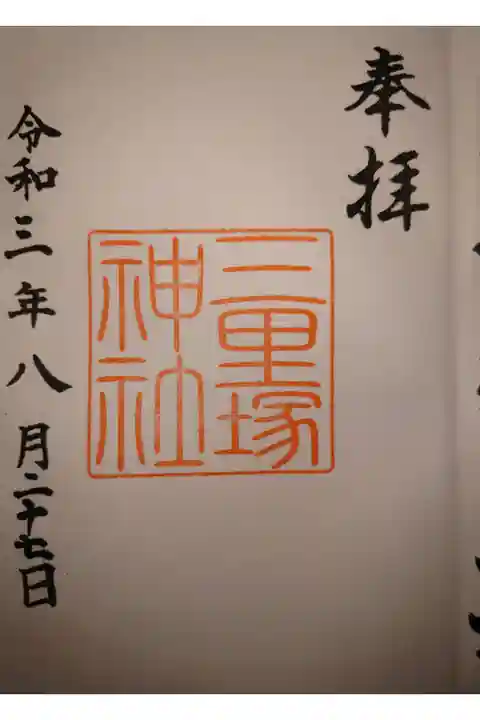 奉拝
三里塚
神社
令和三年八月二十七日